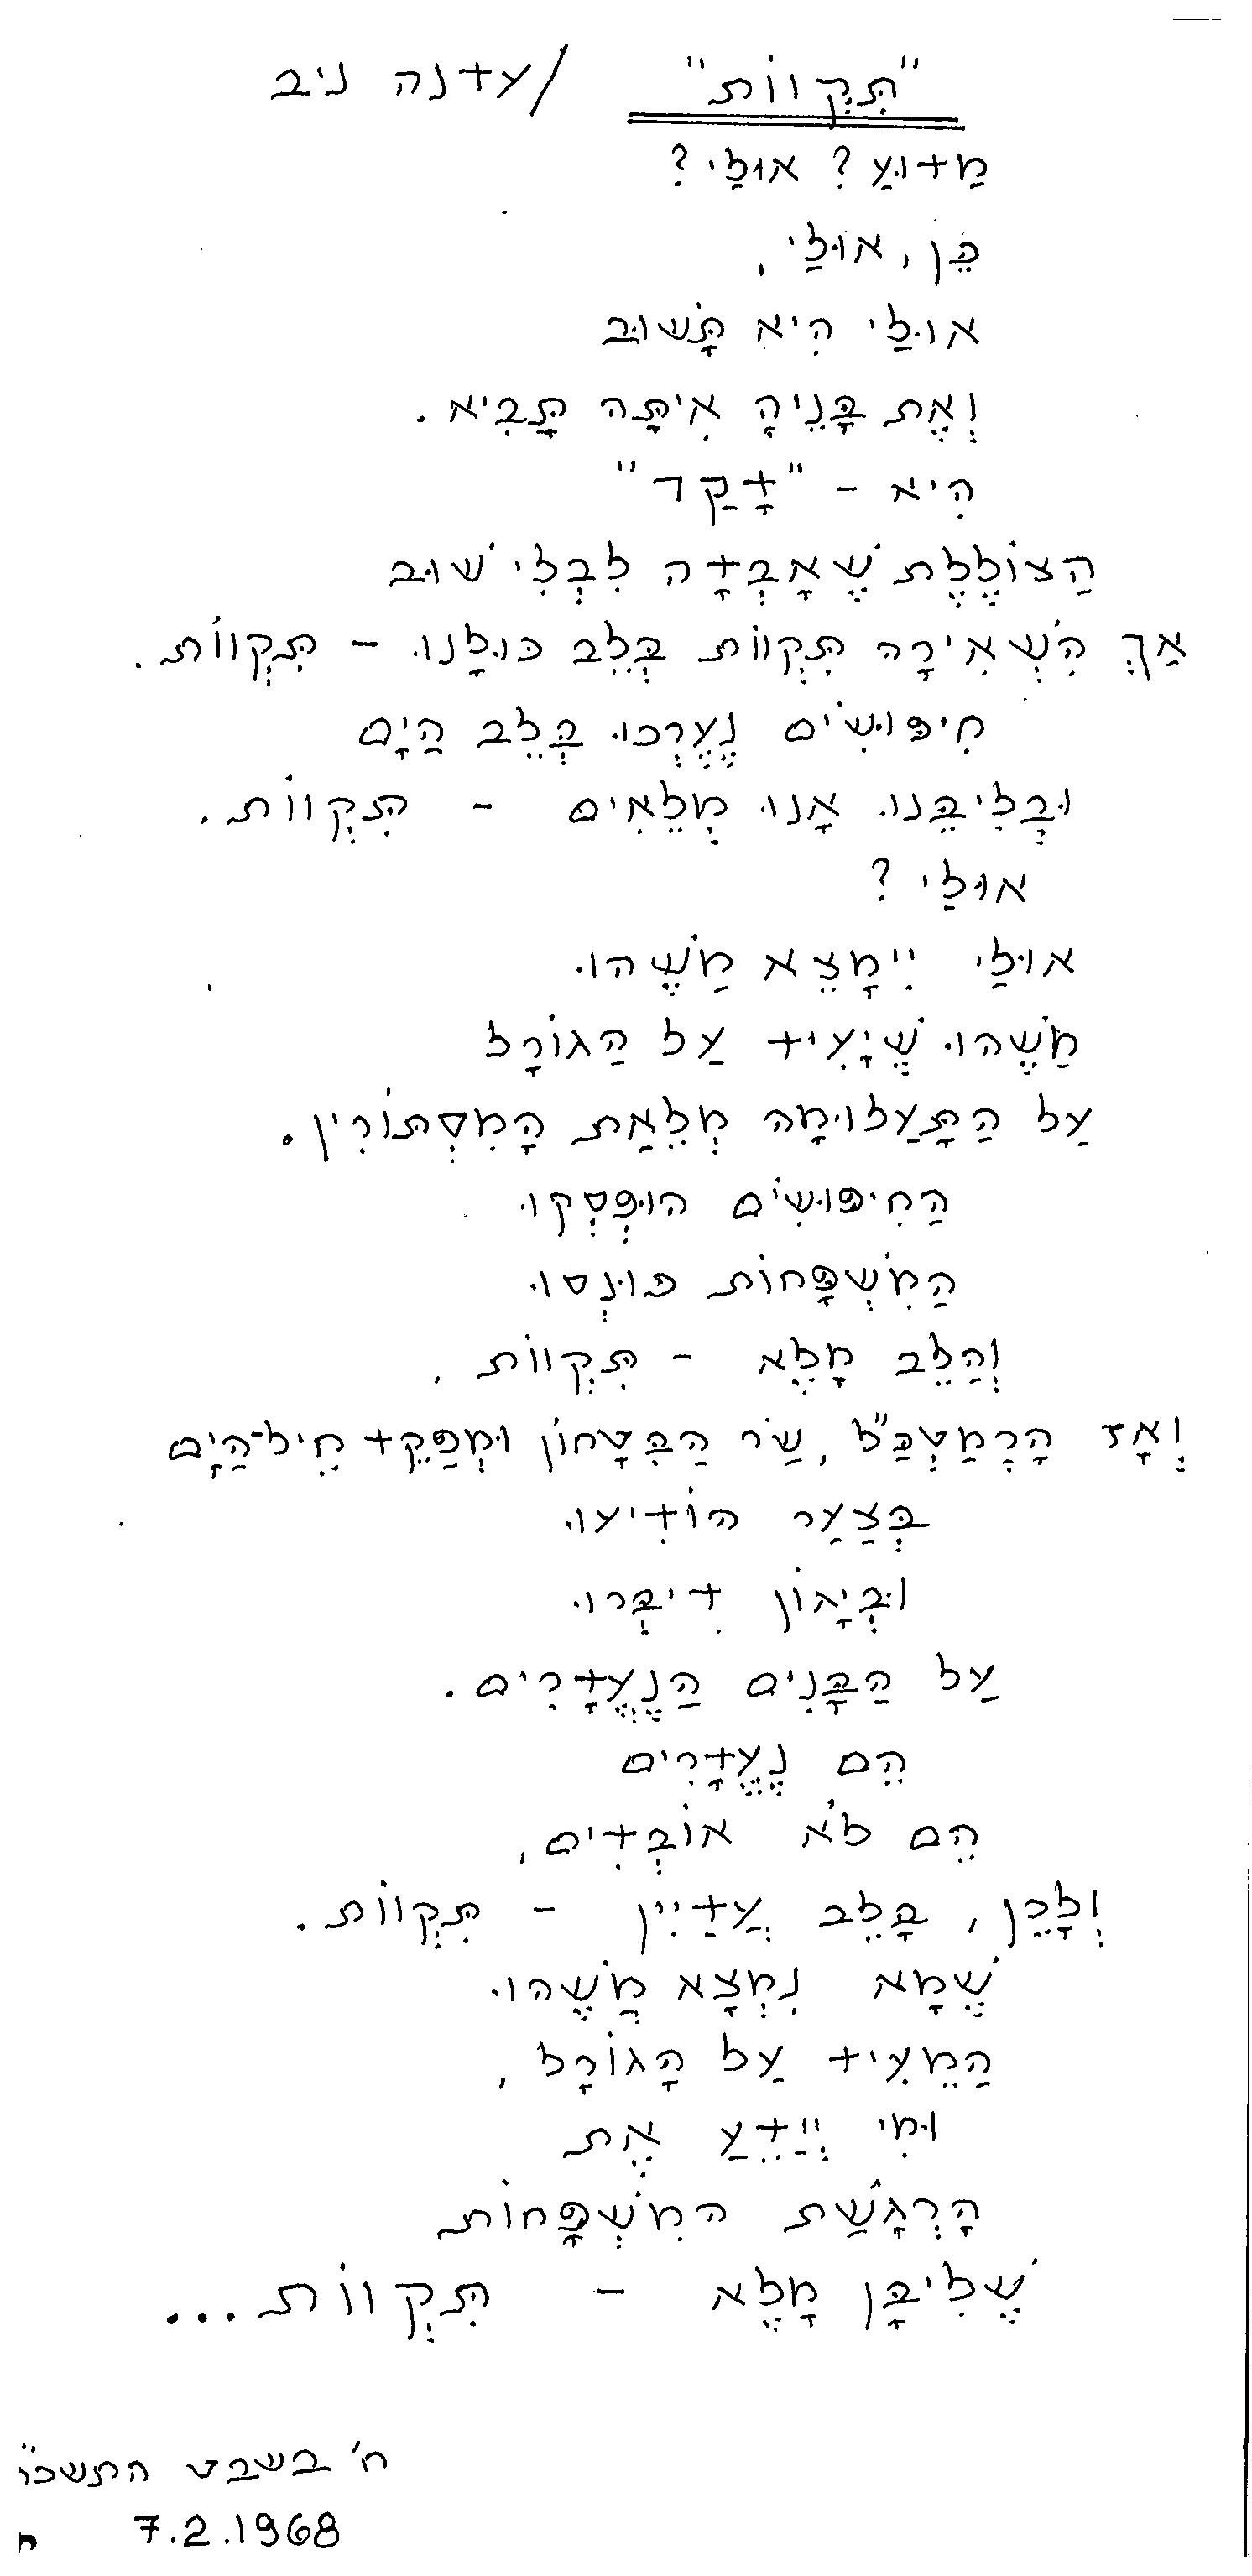 "תִּקְווֹת" / עדנה ניב
מַדוּעַ? אוּלַי?
כֵּן, אוּלַי,
אוּלַי הִיא תָּשׁוּב
וְאֶת בָּנֶיהָ אִיתָּה תָּבִיא.
הִיא - "דָּקַר"
הַצוֹלֶלֶת שֶׁאָבְדָה לִבְלִי שׁוּב
אַךְ הִשְׁאִירָה תִּקְווֹת בְּלֵב כּוּלָנוּ - תִּקְווֹת.
חִיפּוּשִׂים נֶעֶרְכוּ בְּלֵב הַיָם
וּבְלִיבֵּנוּ אָנוּ מְלֵאִים - תִּקְווֹת.
אוּלַי?
אוּלַי יִימָצֵא מַשֶׁהוּ
מַשֶׁהוּ שֶׁיָעִיד עַל הַגוֹרָל
עַל הַתָּעַלוּמָה מְלֵאַת הָמִסְתּוֹרִין.
הַחִיפּוּשִׂים הוּפְסְקוּ
הַמִשְׁפָּחוֹת כּוּנְסוּ
וְהַלֵב מָלֵא - תִּקְווֹת,
וְאָז הָרָמַטְכַּ"ל, שַׂר הַבִּטָחוֹן וּמְפַקֵד חֵיל-הַיָם
בְּצַעַר הוֹדִיעוּ
וּבְיָגוֹן דִיבְּרוּ
עַל הַבָּנִים הַנֶעֱדָרִים.
הֵם נֶעֱדָרִים
הֵם לֹא אוֹבְדִים,
וְלָכֵן, בָּלֵב עֲדַיִין - תִּקְווֹת.
שֶׁמָא נִמְצָא מֲשֶׁהוּ
הַמֵעִיד עַל הָגוֹרָל,
וּמִי יְיַדֵעַ אֶת
הָרְגָשַׁת המִשְׁפָּחוֹת
שֶׁלִיבָּן מָלֶא - תִּקְווֹת...
ח' בשבט התשכ"ו
7.2.1968